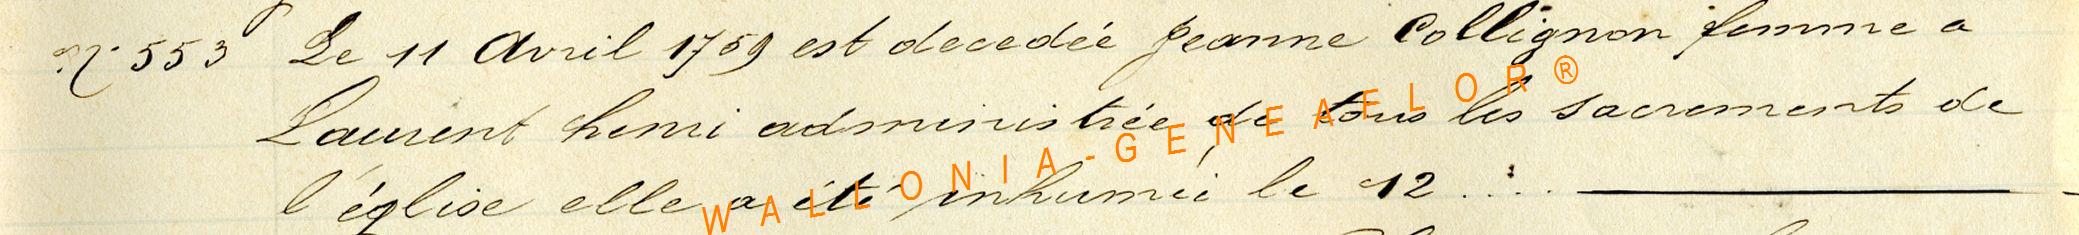 N° 553 Le 11 Avril 1759 est decedée Jeanne Collignon femme a
Laurent henri administrée de tous les sacrements de
l'église elle a été inhumée le 12 . : .
WALLONIA-GENEAFLOR®